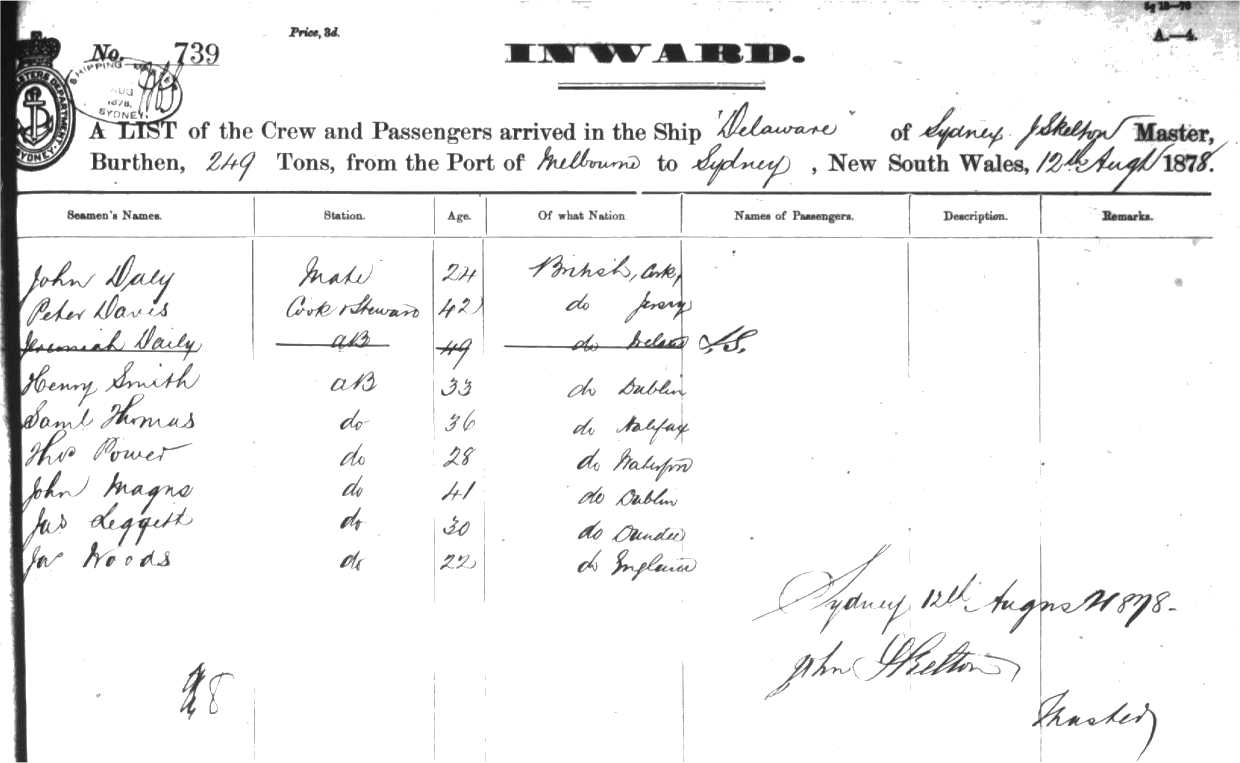 Sg 18—76
Price, 3d.
A.—4.
No. 739
INWARD.
SHIPPING
AUG
1878,
SYDNEY.
MASTERS DEPARTMENT
SYDNEY
A LIST of the Crew and Passengers arrived in the Ship "Delaware" of Sydney J Skelton Master,
Burthen, 249 Tons, from the Port of Melbourne to Sydney, New South Wales, 12th Augt 1878.
Seamen's Names. Station. Age. Of what Nation Names of Passengers. Description. Remarks.
John Daly Mate 24 British, Cork,
Peter Davis Cook & Steward 42 do Jersey
Jeremiah Daily AB 49 do Ireland J.S.
Henry Smith AB 33 do Dublin
Saml Thomas do 36 do Halifax
Thos Power do 28 do Waterford
John Magns do 41 do Dublin
Jas Leggett do 30 do Dundee
Jos Woods do 22 do England
Sydney 12th August 1878-
John Skelton
Master
8